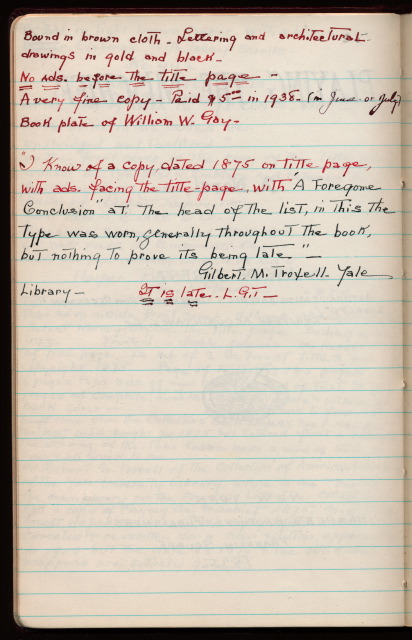 Bound in brown cloth - Lettering and architectural
drawings in gold and black -
No ads. before the title page -
A very fine copy - Paid $5.00 in 1938. (in June or July)
Book plate of William W. Gay -
"I Know of a copy, dated 1875 on title page,
with ads. facing the title-page, with "A Foregone
Conclusion" at the head of the list, in this the
type was worn, generally throughout the book,
but nothing to prove its being late" -
Gilbert M. Troxell. Yale
Library - It is late. L.G.T -